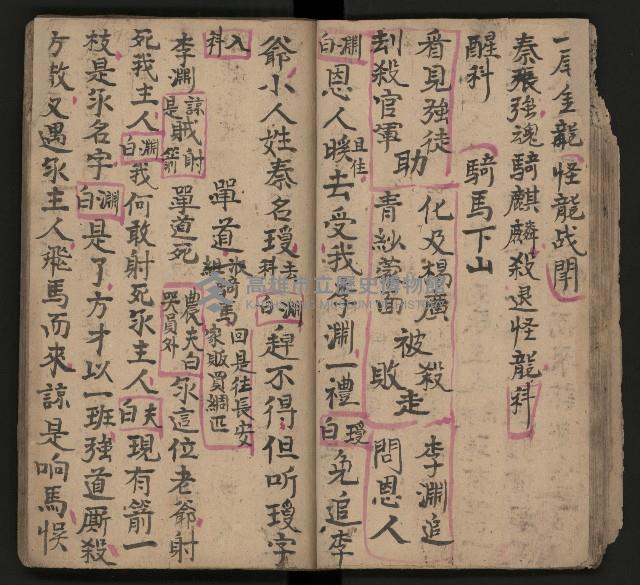 一尾金龍怪龍战鬧
秦衮強魂騎麒麟殺退怪龍科
醒科 騎馬下山
看見強徒 化及楊廣 李淵追
刦殺官軍 助 青紗蒙面 被殺 敗走 問恩人
淵白 恩人暌且住去受我李淵一禮 瓊白 免追李
爺小人姓秦名瓊去科 淵白 趕不得但听瓊字
入科 單道 騎馬 回是往長安 家販買綢匹
李淵 諒是賊射箭 單道死 農夫白 哭員外 氶這位老爺射
死我主人 淵白 我何敢射死氶主人 夫白 現有箭一
枝是氶名字 淵白 是了方才以一班強道厮殺
方敖又遇氶主人飛馬而來諒是响馬悮
高雄市立歷史博物館
KAOHSIUNG MUSEUM OF HISTORY